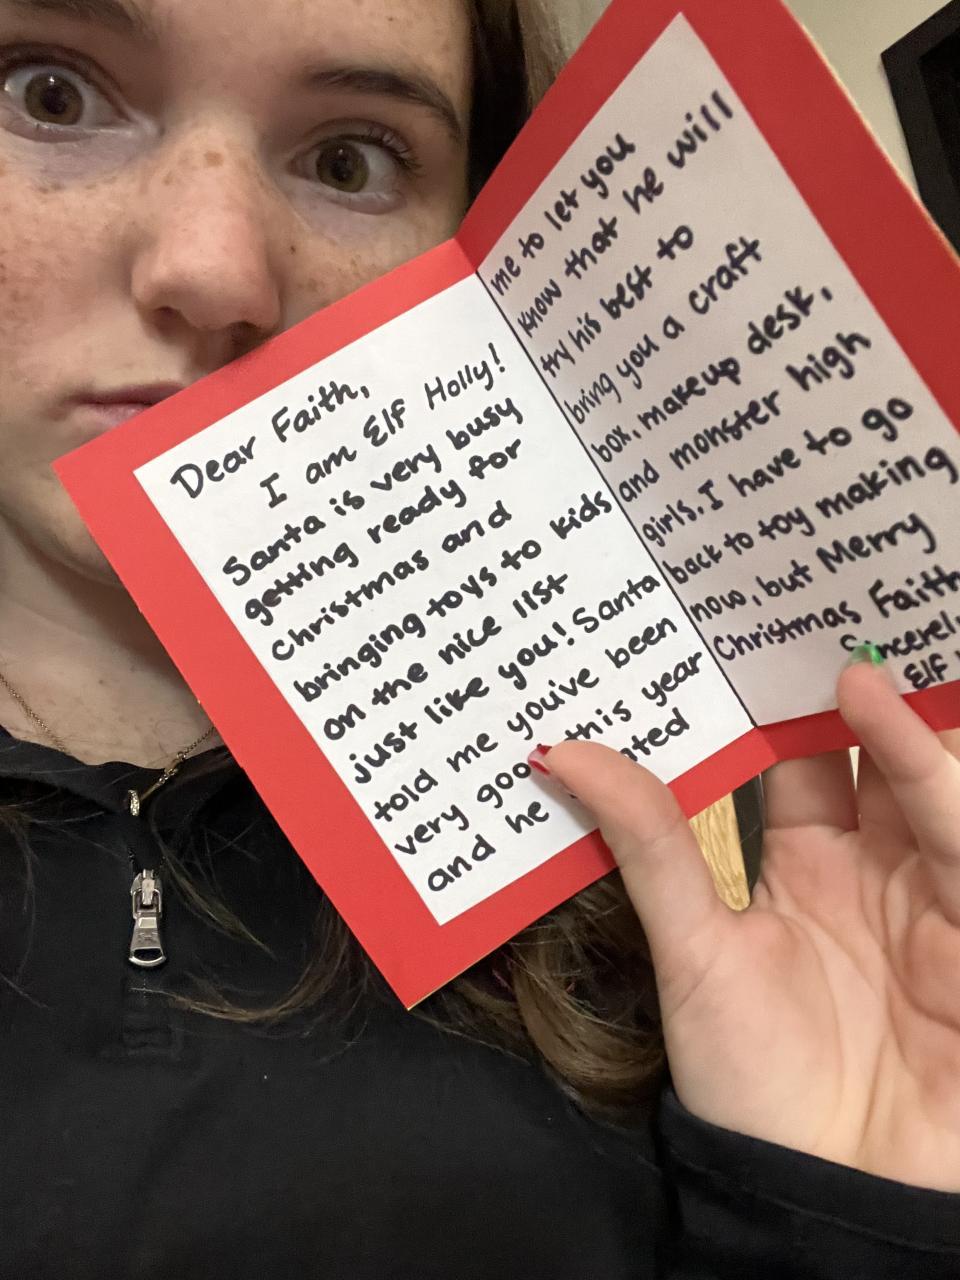 Dear Faith,
I am Elf Holly!
Santa is very busy
getting ready for
Christmas and
bringing toys to kids
on the nice list
just like you! Santa
told me you've been
very this year
and he
me to let you
know that he will
try his best to
bring you a craft
box, makeup desk,
and monster high
girls. I have to go
back to toy making
now, but Merry
Christmas Faith
Elf